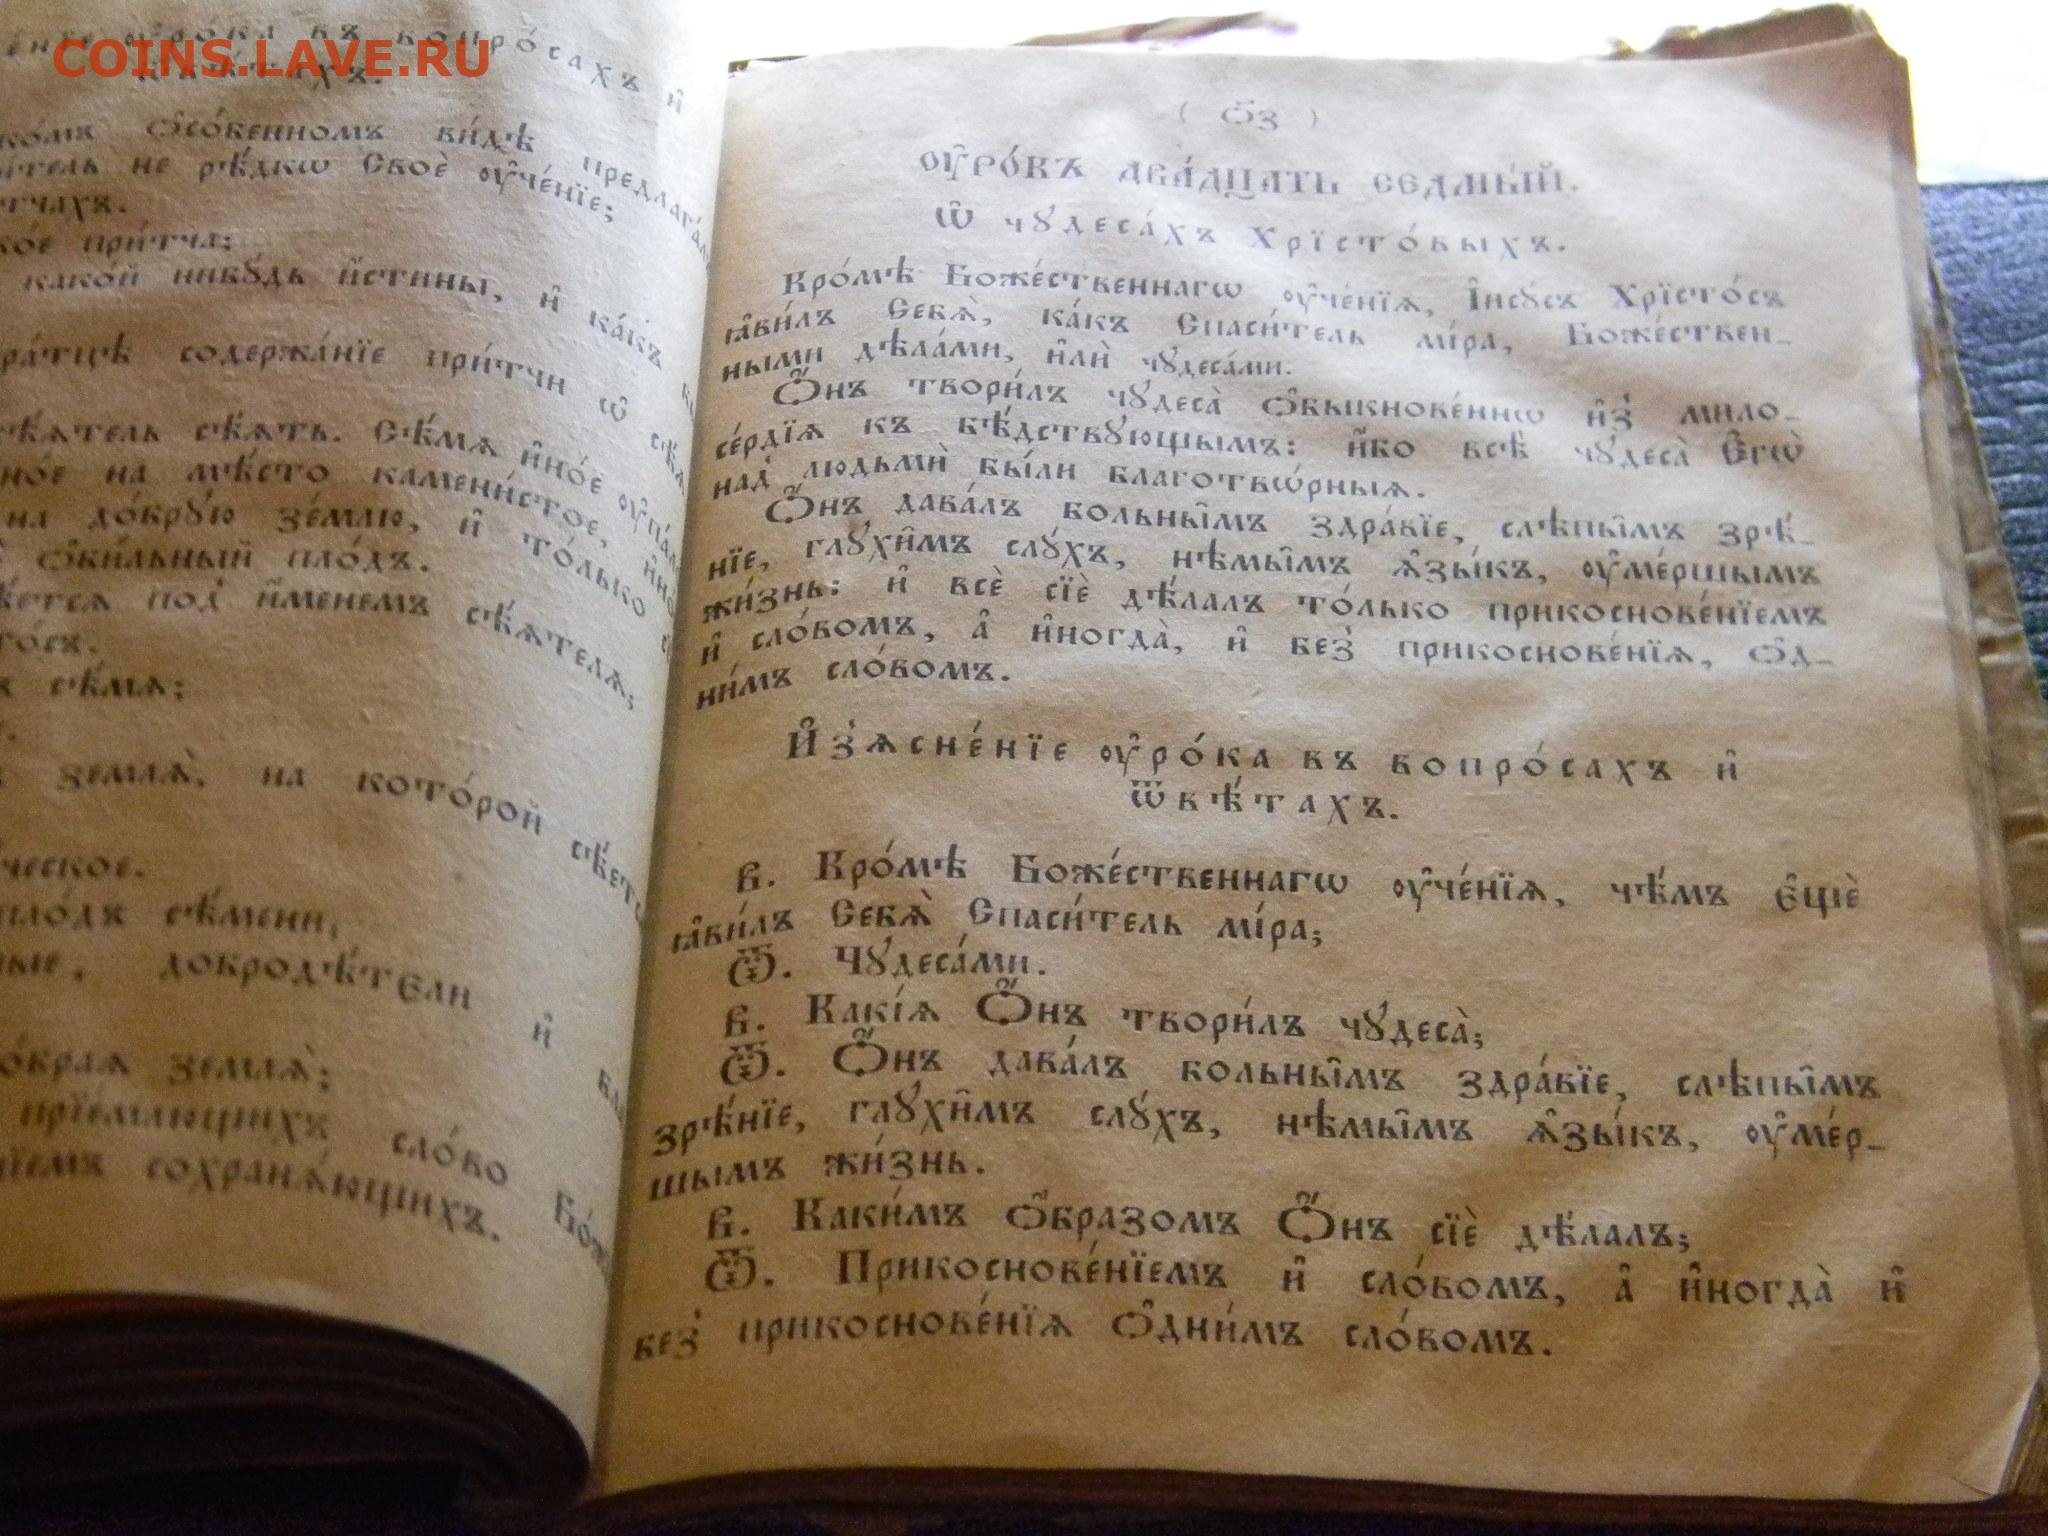 COINS.LAVE.RU
ᲂу҆ро́ка въ вопро́сахъ и҆
ѻ҆со́бенномъ ви́дѣ предлага́лъ
не рѣ́дкѡ Своѐ ᲂу҆че́нїе;
при́тча;
како́й нибꙋ́дь и҆́стины, и҆ ка́къ
содержа́нїе при́тчи ѡ҆
сѣ́ять. Сѣ́мѧ и҆но́е ᲂу҆па́ло
на мѣ́сто камени́стое,
на до́брꙋю зе́млю, и҆ то́лько
ѻ҆би́льный пло́дъ.
под̾ и҆́менемъ сѣ́ѧтелѧ;
сѣ́мѧ;
землѧ̀, на кото́рой сѣ́етъ
ческое.
сѣ́мени,
добродѣ́тели и҆
землѧ̀;
прїе́млющихъ сло́во Бо́ж
сохранѧ́ющихъ.
( ѻ҃з )
ᲂу҆ро́къ два́дцать седмы́й.
Ѡ҆ чꙋдеса́хъ Хрїсто́выхъ.
Кро́мѣ Боже́ственнагѡ ᲂу҆че́нїѧ, І҆исꙋ́съ Хрїсто́съ
ꙗ҆ви́лъ Себѧ̀, ка́къ Спаси́тель мі́ра, Боже́ствен-
ными дѣла́ми, и҆лѝ чꙋдеса́ми.
Ѻ҆́нъ твори́лъ чꙋдеса̀ ѻ҆быкнове́ннѡ и҆з̾ мило-
се́рдїѧ къ бѣ́дствꙋющымъ: и҆́бо всѣ̀ чꙋдеса̀ Е҆гѡ̀
над̾ людьмѝ бы́ли благотвѡ́рныѧ.
Ѻ҆́нъ дава́лъ больны̑мъ здра́вїе, слѣпы̑мъ зрѣ́-
нїе, глꙋхи̑мъ слꙋ́хъ, нѣмы̑мъ ѧ҆зы́къ, ᲂу҆ме́ршымъ
жи́знь: и҆ всѐ сїѐ дѣ́лалъ то́лько прикоснове́нїемъ
и҆ сло́вомъ, а҆ и҆ногда̀, и҆ без̾ прикоснове́нїѧ, ѻ҆д-
ни́мъ сло́вомъ.
И҆з̾ѧсне́нїе ᲂу҆ро́ка въ вопро́сахъ и҆
ѿвѣ́тахъ.
в. Кро́мѣ Боже́ственнагѡ ᲂу҆че́нїѧ, чѣ́мъ є҆щѐ
ꙗ҆ви́лъ Себѧ̀ Спаси́тель мі́ра;
Ѿ. Чꙋдеса́ми.
в. Какі́ѧ Ѻ҆́нъ твори́лъ чꙋдеса̀;
Ѿ. Ѻ҆́нъ дава́лъ больны̑мъ здра́вїе, слѣпы̑мъ
зрѣ́нїе, глꙋхи̑мъ слꙋ́хъ, нѣмы̑мъ ѧ҆зы́къ, ᲂу҆ме́р-
шымъ жи́знь.
в. Каки́мъ ѻ҆́бразомъ Ѻ҆́нъ сїѐ дѣ́лалъ;
Ѿ. Прикоснове́нїемъ и҆ сло́вомъ, а҆ и҆ногда̀ и҆
без̾ прикоснове́нїѧ ѻ҆дни́мъ сло́вомъ.